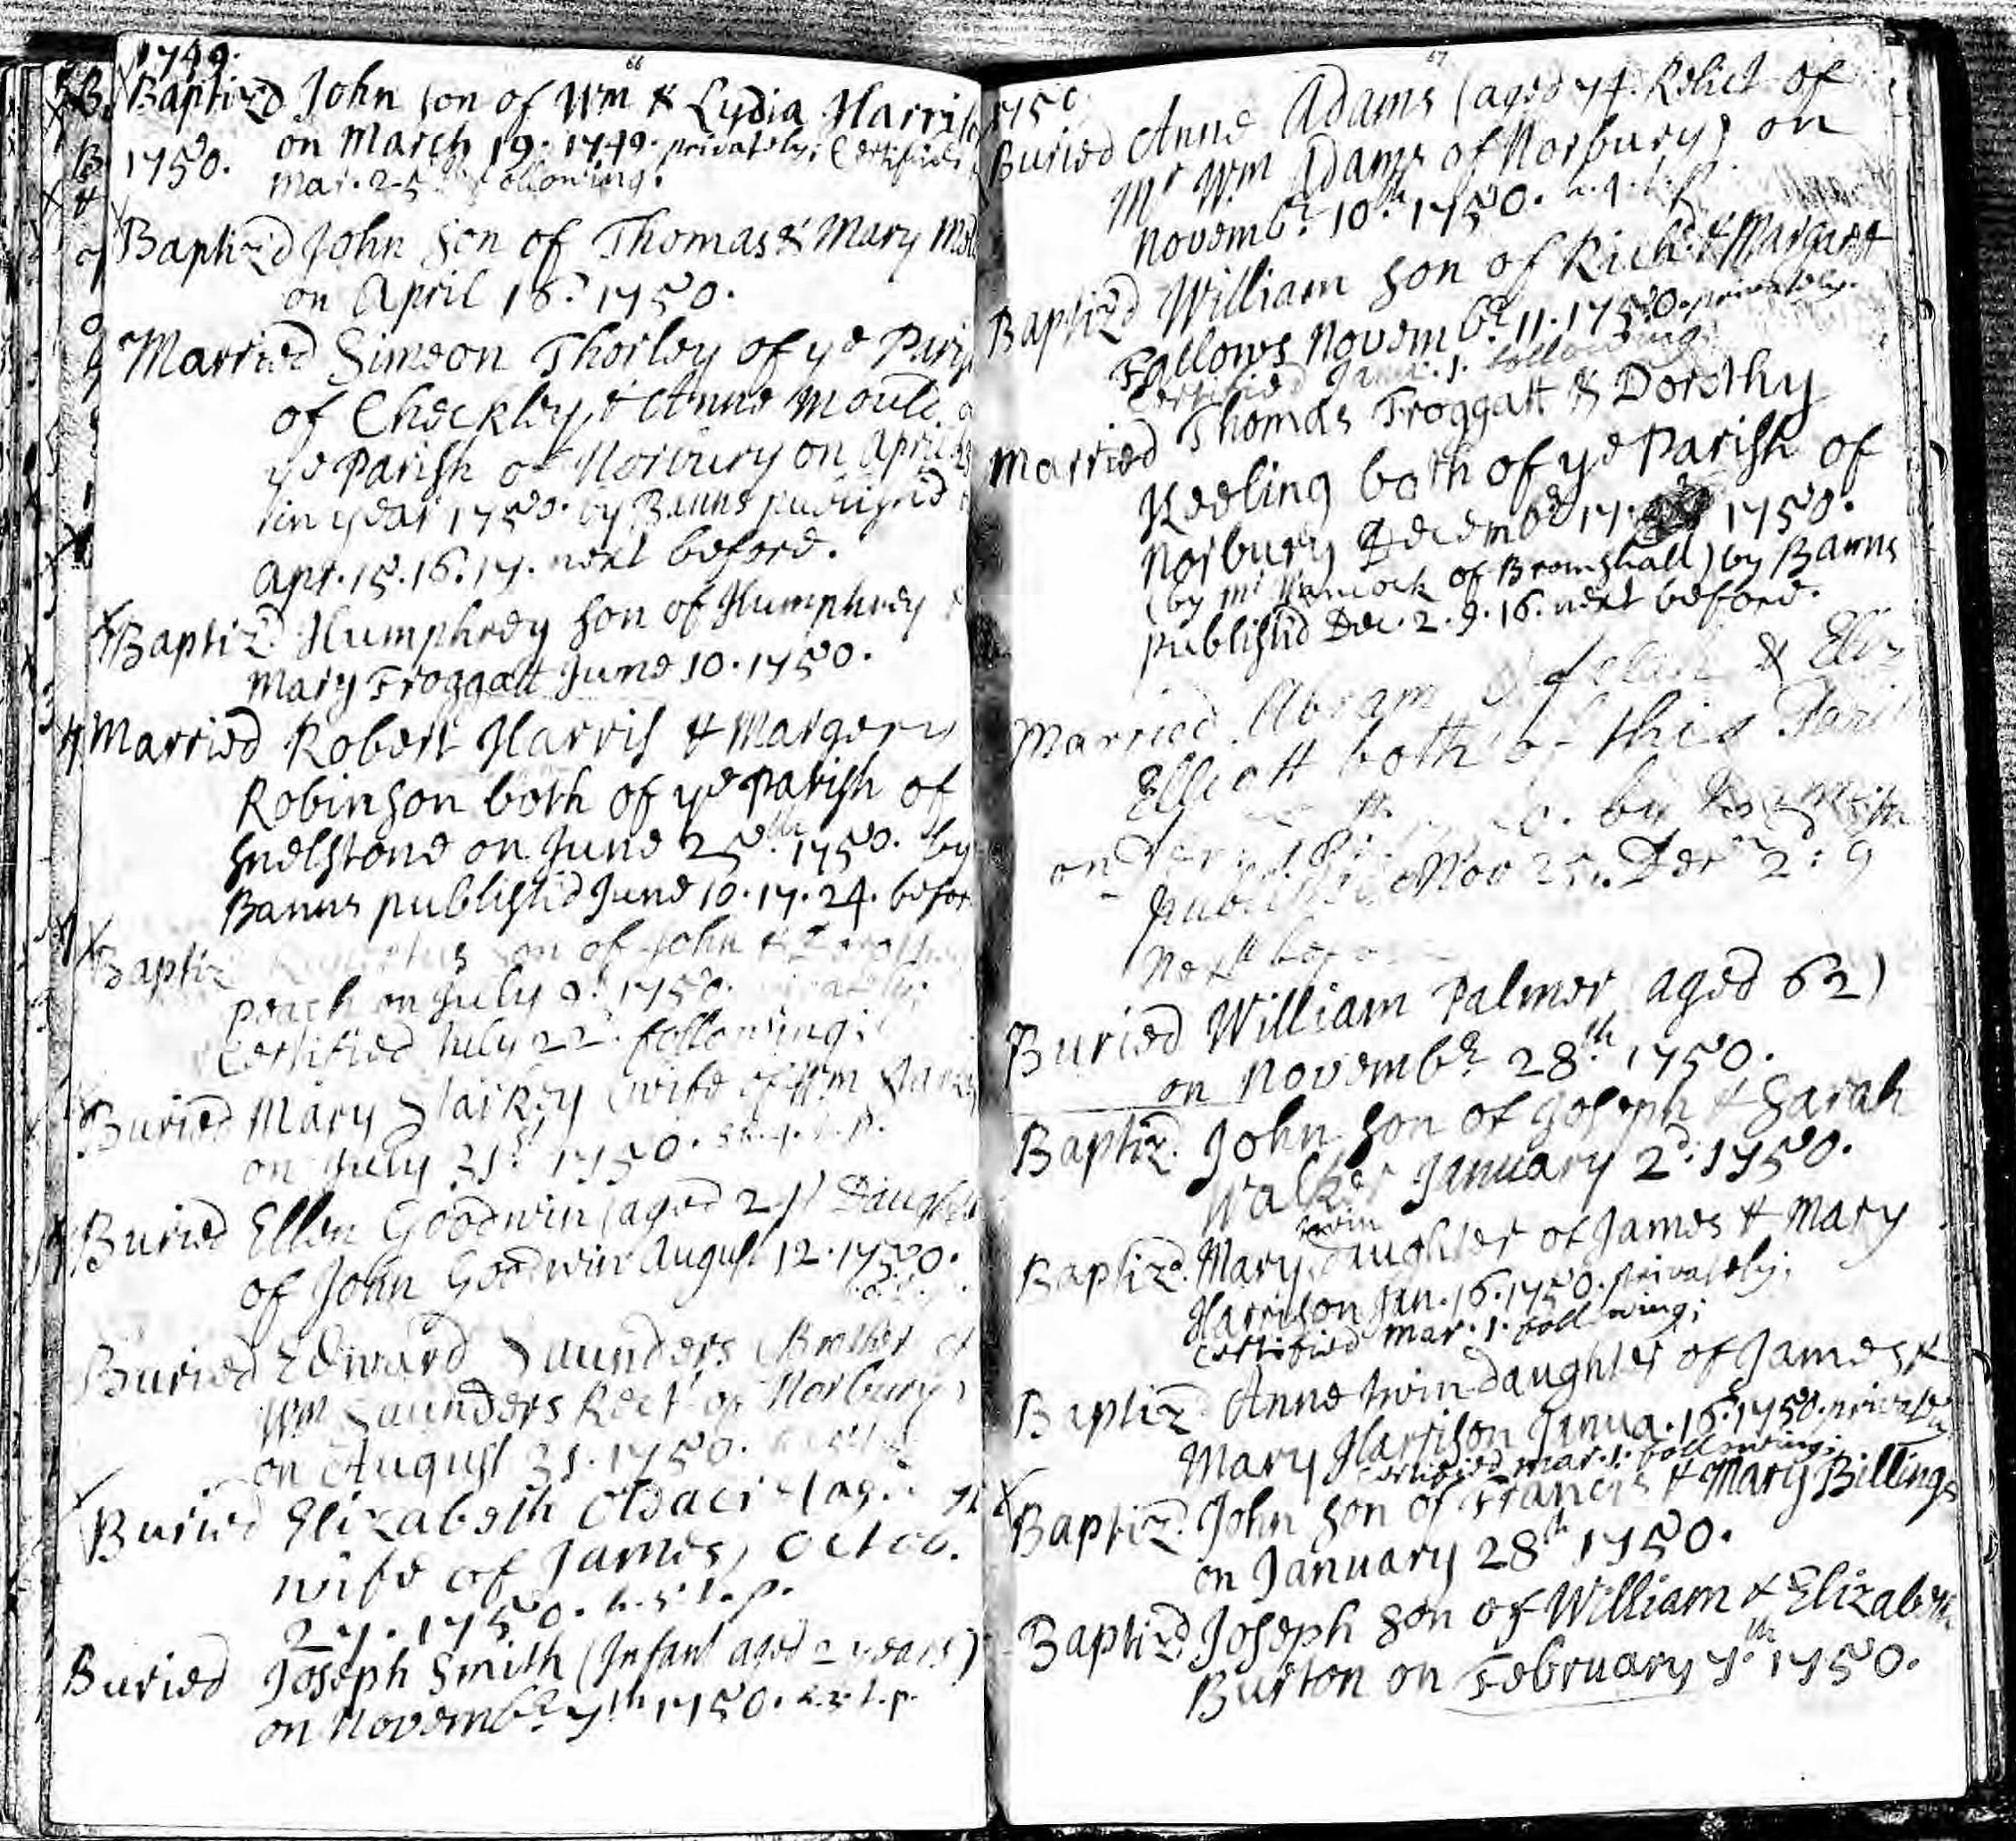 66
1749.
Baptiz'd John son of Wm & Lydia Harris
on March 19. 1749. privately; Certified
1750. Mar. 25. following.
Baptiz'd John Son of Thomas & Mary
on April 16. 1750.
Married Simeon Thorley of ye Parish
of Checkley, & Anne Mould
ye Parish of Norbury on April
in year 1750. by Banns publish'd
Apr. 15. 16. 17. next before.
Baptiz'd Humphrey Son of Humphrey &
Mary Froggatt June 10. 1750.
Married Robert Harris & Margery
Robinson both of ye Parish of
Snelstone on June 25th 1750. by
Banns publish'd June 10. 17. 24. befor
Baptiz son of John &
Peach on July 1750.
Certified July 22. following;
Buried Mary Starkey (wife of Wm
on July 31st 1750.
Buried Ellen Goodwin (aged 27) Daughter
of John Goodwin August 12. 1750.
Buried Edward Saunders (Brother of
Wm Saunders Rectr of Norbury)
on August 31. 1750.
Buried Elizabeth Oldacre
wife of James) Octob.
27. 1750. h.s.t.p.
Buried Joseph Smith (Infant aged 2 years)
on Novembr 7th 1750.
67
1750
Buried Anne Adams (aged 74. Relict of
Mr Wm Adams of Norbury) on
Novembr 10th 1750.
Baptiz'd William Son of Richd & Margaret
Fallows Novembr 11. 1750. privately.
Certified Janu. 1. following;
Married Thomas Froggatt & Dorothy
Keeling both of ye Parish of
Norbury Decembr 17. 1750.
(by Mr Hancock of Bromshall) by Banns
publish'd Dec. 2. 9. 16. next before.
Married Abram & Eliz
Elliott both of this Parish
on by
Nov 25. Decr 2d 9
Next before
Buried William Palmer aged 62)
on Novembr 28th 1750.
Baptiz'd John Son of Joseph & Sarah
Walker January 2d. 1750.
Baptiz'd Mary twin daughter of James & Mary
Harrison Jan. 16. 1750. privately;
Certified Mar. 1. following;
Baptiz'd Anne twin daughter of James &
Mary Harrison Janua. 16. 1750. privately
Certified Mar. 1. following;
Baptiz'd John Son of Francis & Mary Billings
on January 28th 1750.
Baptiz'd Joseph Son of William & Elizabeth
Burton on February 7th 1750.